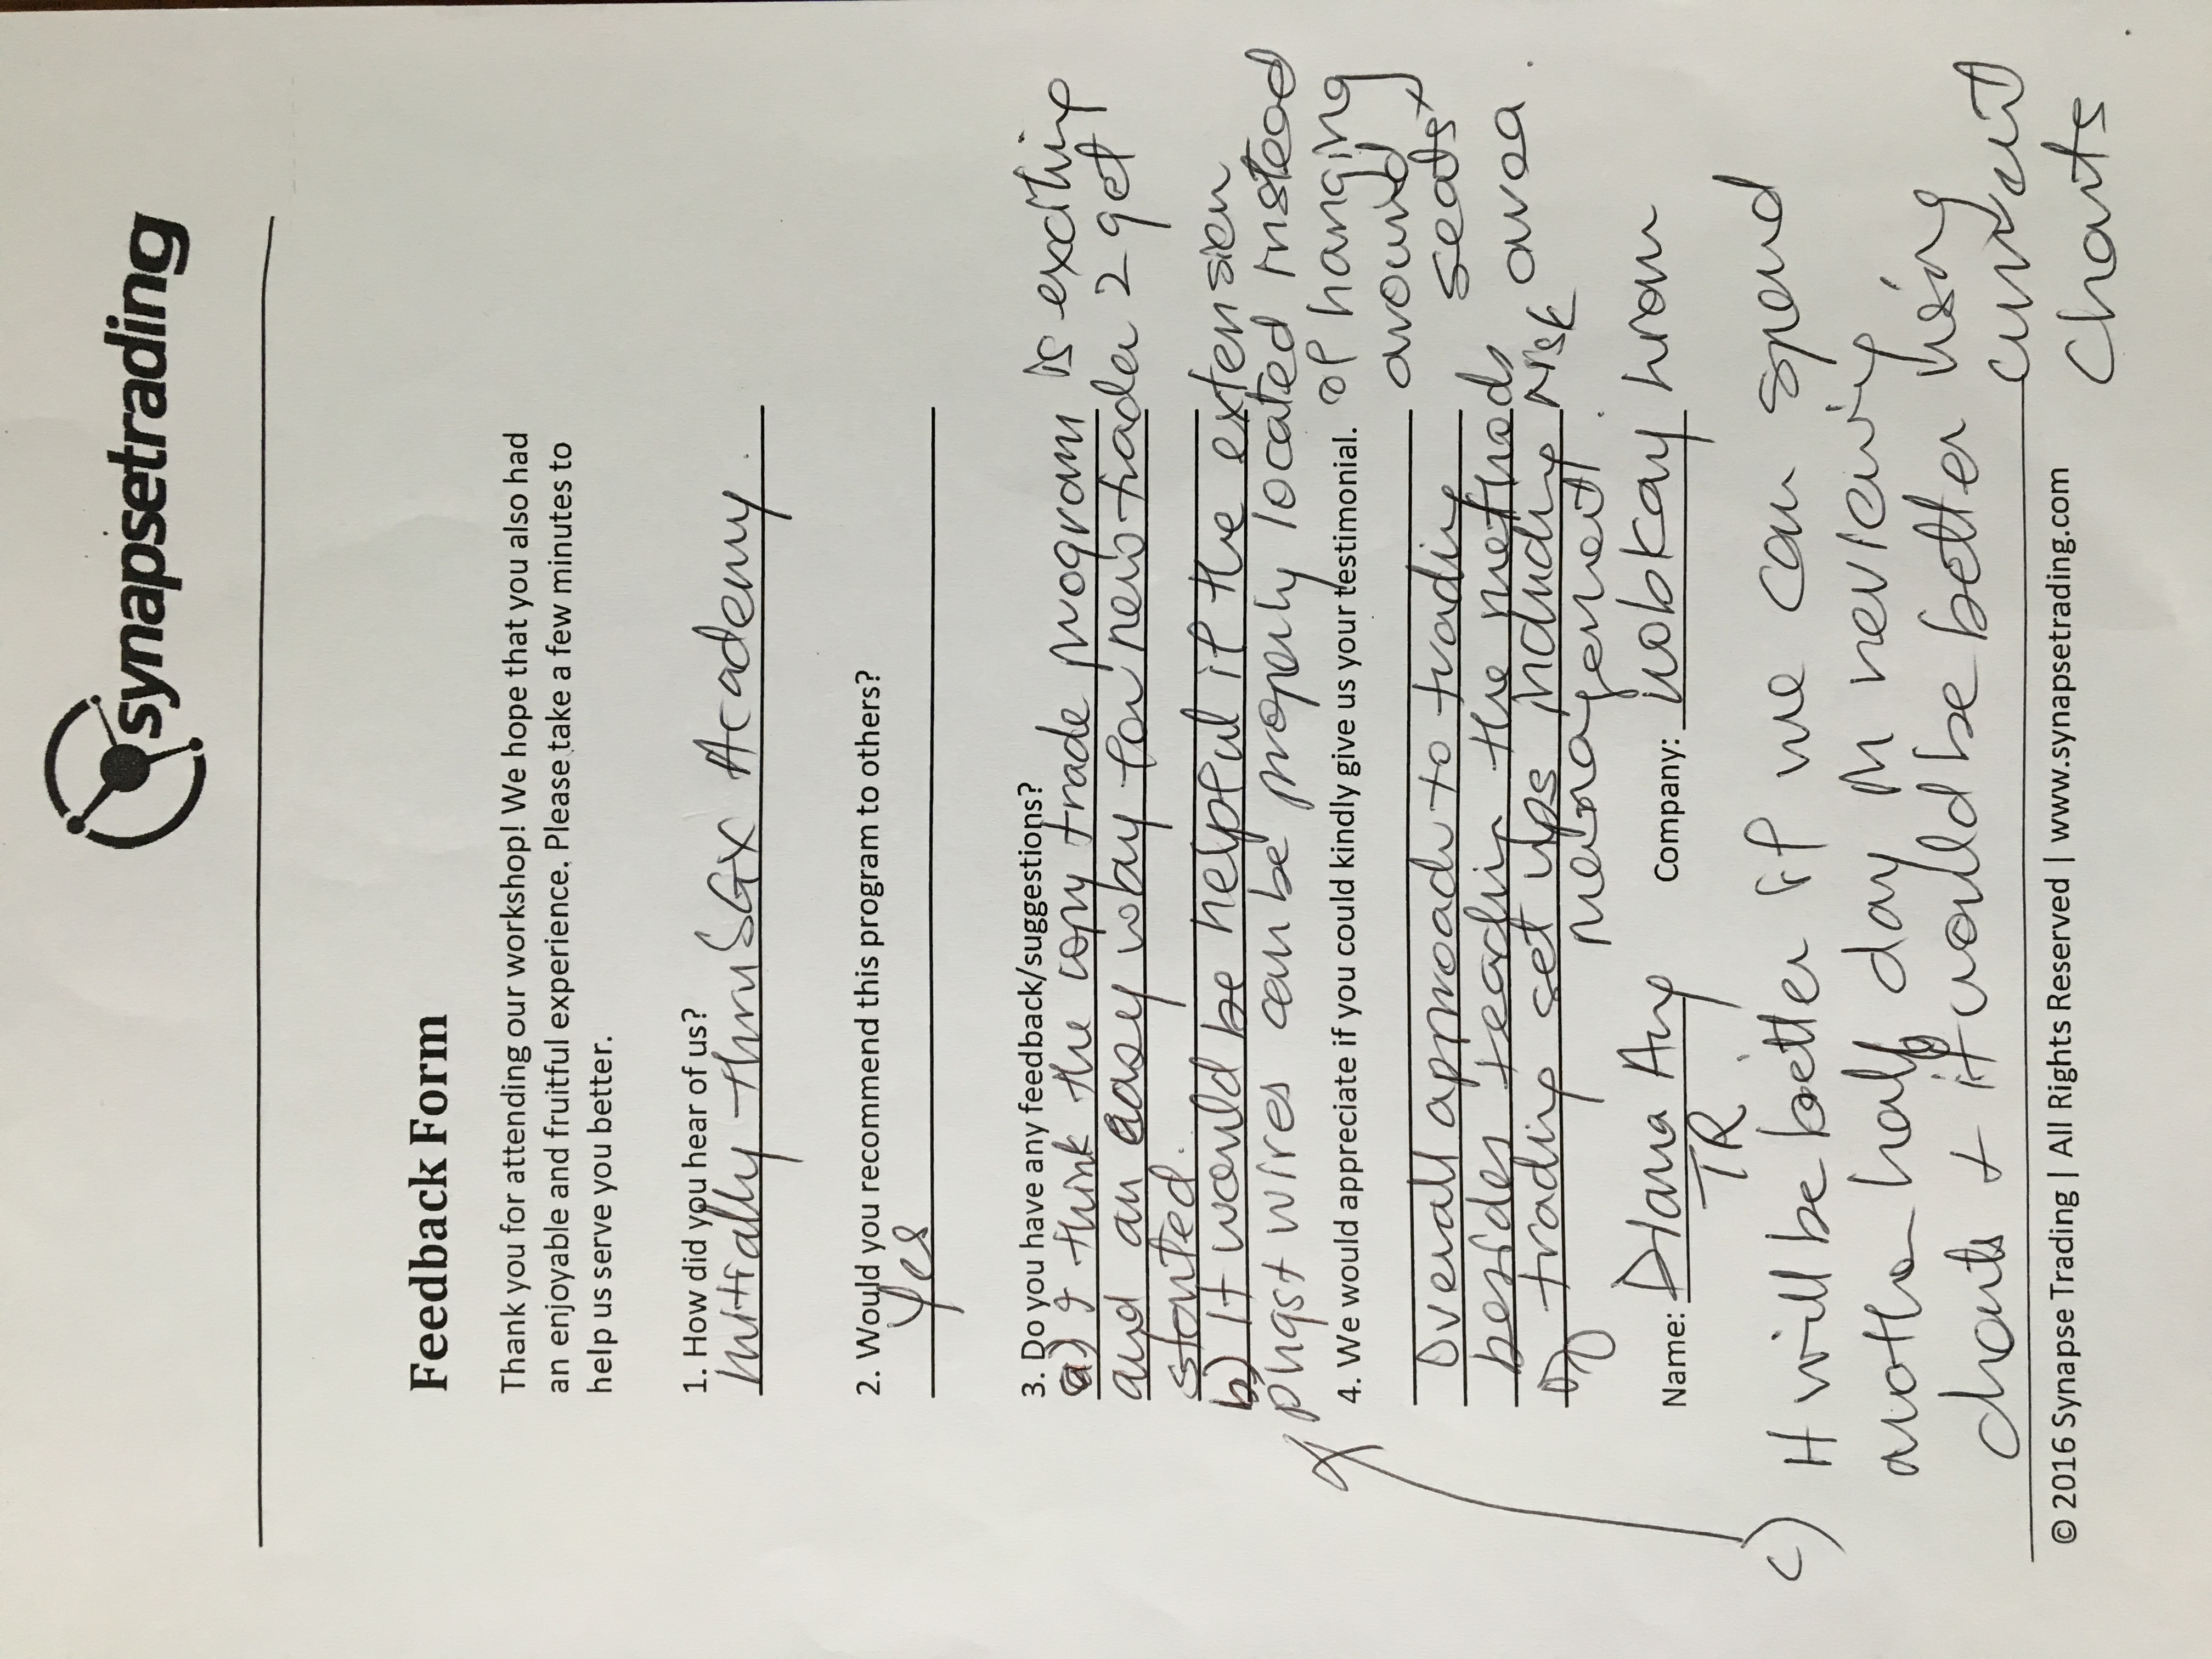 synapsetrading
Feedback Form
Thank you for attending our workshop! We hope that you also had
an enjoyable and fruitful experience. Please take a few minutes to
help us serve you better.
1. How did you hear of us?
Initially thru SGX Academy.
2. Would you recommend this program to others?
Yes
3. Do you have any feedback/suggestions?
a) I think the copy trade program is exciting
and an easy way for new trader 2 get
started.
b) It would be helpful if the extension
plugs + wires can be properly located instead
of hanging
around
seats
area.
4. We would appreciate if you could kindly give us your testimonial.
Overall approach to trading
besides teaching the methods
of trading set ups including risk
management.
Name: Diana Ang Company: Wokay
TR
c) It will be better if we can spend
another half day in reviewing
charts + it would be better using
current
charts
© 2016 Synapse Trading | All Rights Reserved | www.synapsetrading.com